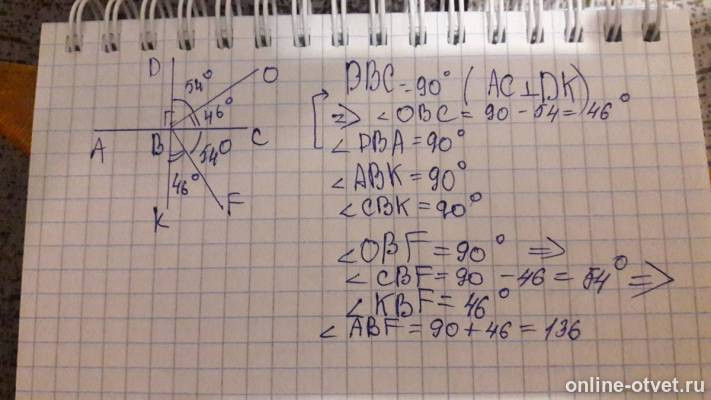 D
O
54°
46°
A
B
C
54°
46°
K
F
DBC = 90° (AC⊥DK)
=> ∠OBC = 90 - 54 = 46°
∠DBA = 90°
∠ABK = 90°
∠CBK = 90°
∠OBF = 90° =>
∠CBF = 90 - 46 = 54° =>
∠KBF = 46°
∠ABF = 90 + 46 = 136
online-otvet.ru